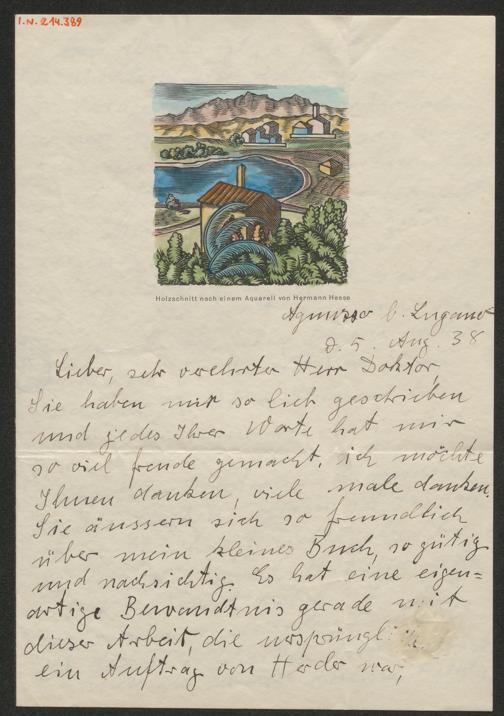 I.N. 214.389
Holzschnitt nach einem Aquarell von Hermann Hesse
Agnuzzo b. Lugano
d. 5. Aug. 38
Lieber, sehr verehrter Herr Doktor,
Sie haben mir so lieb geschrieben
und jedes Ihrer Worte hat mir
so viel freude gemacht, ich möchte
Ihnen danken, viele male danken.
Sie äussern sich so freundlich
über mein kleines Buch, so gütig
und nachsichtig. Es hat eine eigen=
artige Bewandtnis gerade mit
dieser Arbeit, die ursprüngl
ein Auftrag von Herder war,